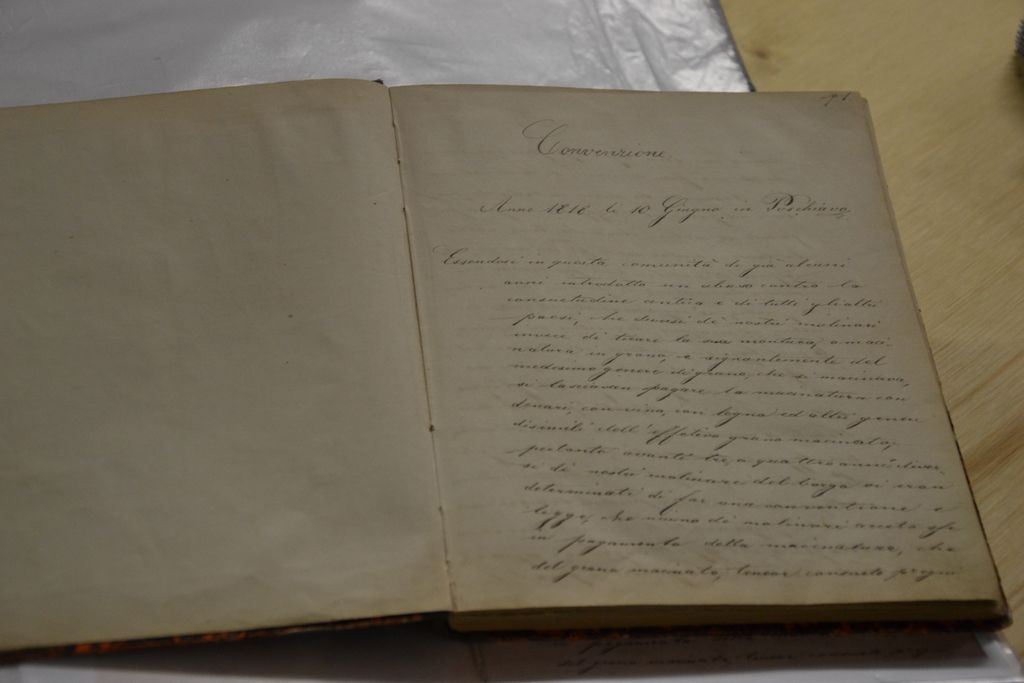 71
Convenzione
Anno 1818 li 10 Giugno in Poschiavo
Essendosi in questa comunità di già alcuni
anni introdotto un abuso contro la
consuetudine antica e di tutti gli altri
paesi, che diversi di nostri molinari
invece di tirare la sua moltura, o maci-
natura in grano, e signantemente del
medesimo genere di grano, che si macinava,
si lasciavan pagare la macinatura con
denari, con vino, con legna ed altri generi
dissimili dell'effetivo grano macinato,
pertanto avanti tre, o quattro anni diver-
si di nostri molinari del borgo si eran
determinati di far una convenzione e
legge, che niuno di molinari accetasse
in pagamento della macinatura, che
del grano macinato,